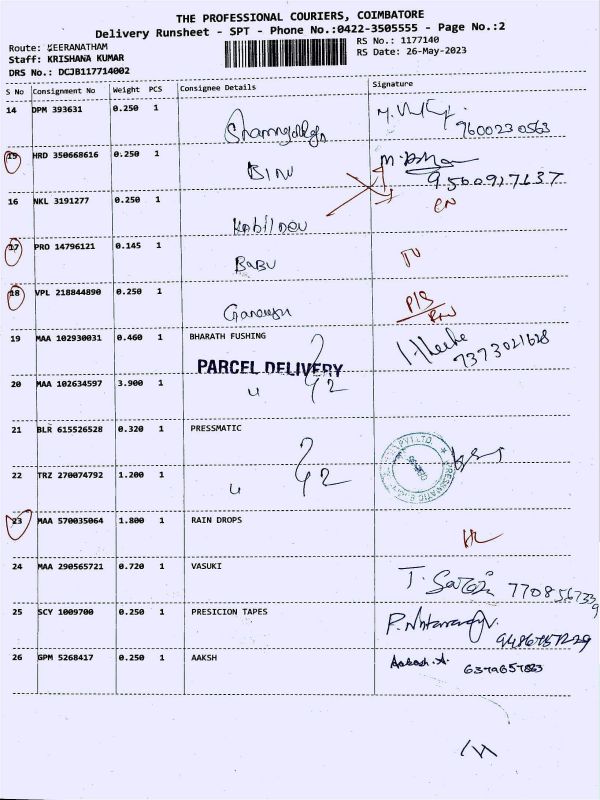 THE PROFESSIONAL COURIERS, COIMBATORE
Delivery Runsheet - SPT - Phone No.:0422-3505555 - Page No.:2
Route: KEERANATHAM
RS No.: 1177140
Staff: KRISHANA KUMAR
RS Date: 26-May-2023
DRS No.: DCJB117714002
S No Consignment No Weight PCS Consignee Details Signature
14 DPM 393631 0.250 1
9600230563
15 HRD 350668616 0.250 1 BINU
9500917637
16 NKL 3191277 0.250 1 KABILDEV
17 PRO 14796121 0.145 1 BABU
18 VPL 218844890 0.250 1 Ganesan
19 MAA 102930031 0.460 1 BHARATH FUSHING
7373021628
PARCEL DELIVERY
20 MAA 102634597 3.900 1 "
21 BLR 615526528 0.320 1 PRESSMATIC
22 TRZ 270074792 1.200 1 "
23 MAA 570035064 1.800 1 RAIN DROPS
24 MAA 290565721 0.720 1 VASUKI
7708567339
25 SCY 1009700 0.250 1 PRESICION TAPES
26 GPM 5268417 0.250 1 AAKSH Aakash.A.